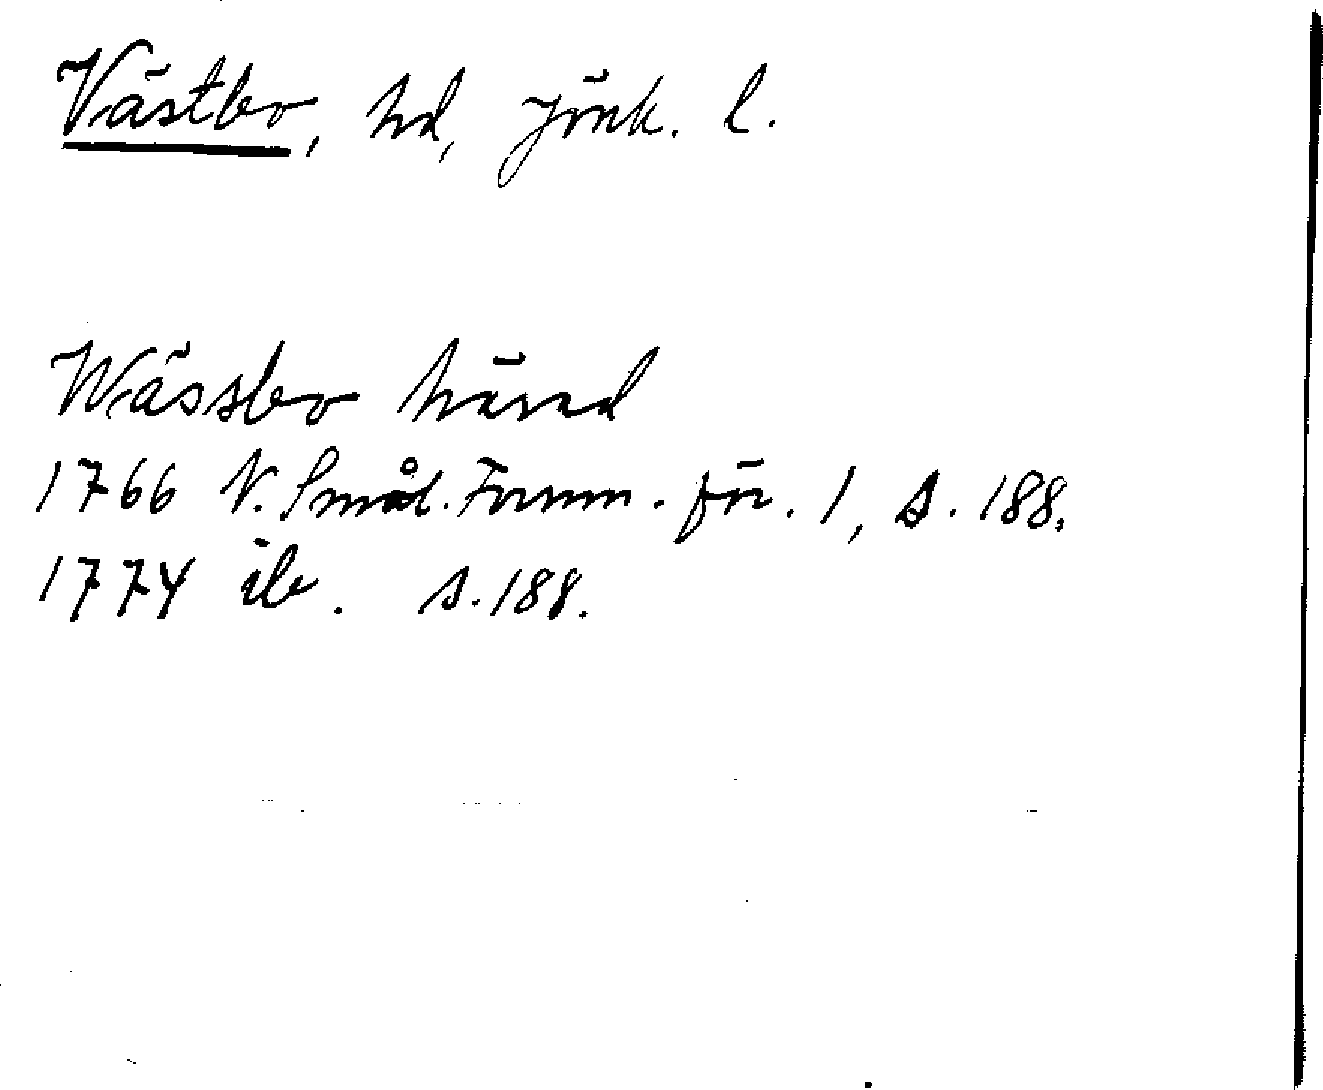 Västbo, hd, Jönk. l.
Wässbo härad
1766 N. Smål. Fornm. för. 1, s. 188.
1774 ib. s. 188.